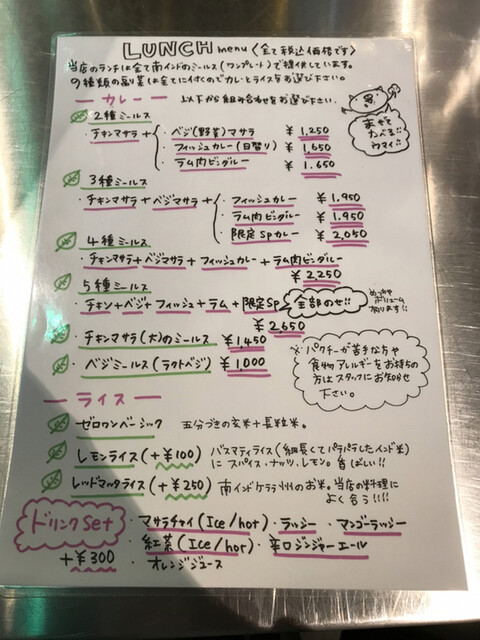 LUNCH menu 〈全て税込価格です〉
当店のランチは全て南インドのミールス(ワンプレート)で提供しています。
9種類の副菜は全てに付くのでカレーとライスをお選び下さい。
ーカレー 以下から組み合わせをお選び下さい。
2種ミールス
・チキンマサラ+
・ベジ(野菜)マサラ ¥1,250
・フィッシュカレー(日替り) ¥1,650
・ラム肉ビンダルー ¥1,650
まぜて
たべる!!
ウマイ!!
3種ミールス
・チキンマサラ+ベジマサラ+
・フィッシュカレー ¥1,950
・ラム肉ビンダルー ¥1,950
・限定Spカレー ¥2,050
4種ミールス
・チキンマサラ+ベジマサラ+フィッシュカレー+ラム肉ビンダルー
¥2,250
5種ミールス
・チキン+ベジ+フィッシュ+ラム+限定Sp 全部のせ!!
めっちゃボリューム有ります!!
¥2,650
・チキンマサラ(大)のミールス ¥1450
・ベジミールス(ラクトベジ) ¥1,000
※パクチーが苦手な方や
食物アレルギーをお持ちの
方はスタッフにお知らせ
下さい。
ーライスー
ゼロワンベーシック 五分づきの玄米+長粒米。
レモンライス(+¥100) バスマティライス(細長くてパラパラしたインド米)
にスパイス・ナッツ、レモン。香ばしい!!
レッドマッタライス(+¥250) 南インドケララ州のお米。当店の料理に
よく合う!!!!
ドリンクSet
+¥300
・マサラチャイ(Ice/hot) ・ラッシー ・マンゴーラッシー
・紅茶(Ice/hot) ・辛口ジンジャーエール
・オレンジジュース